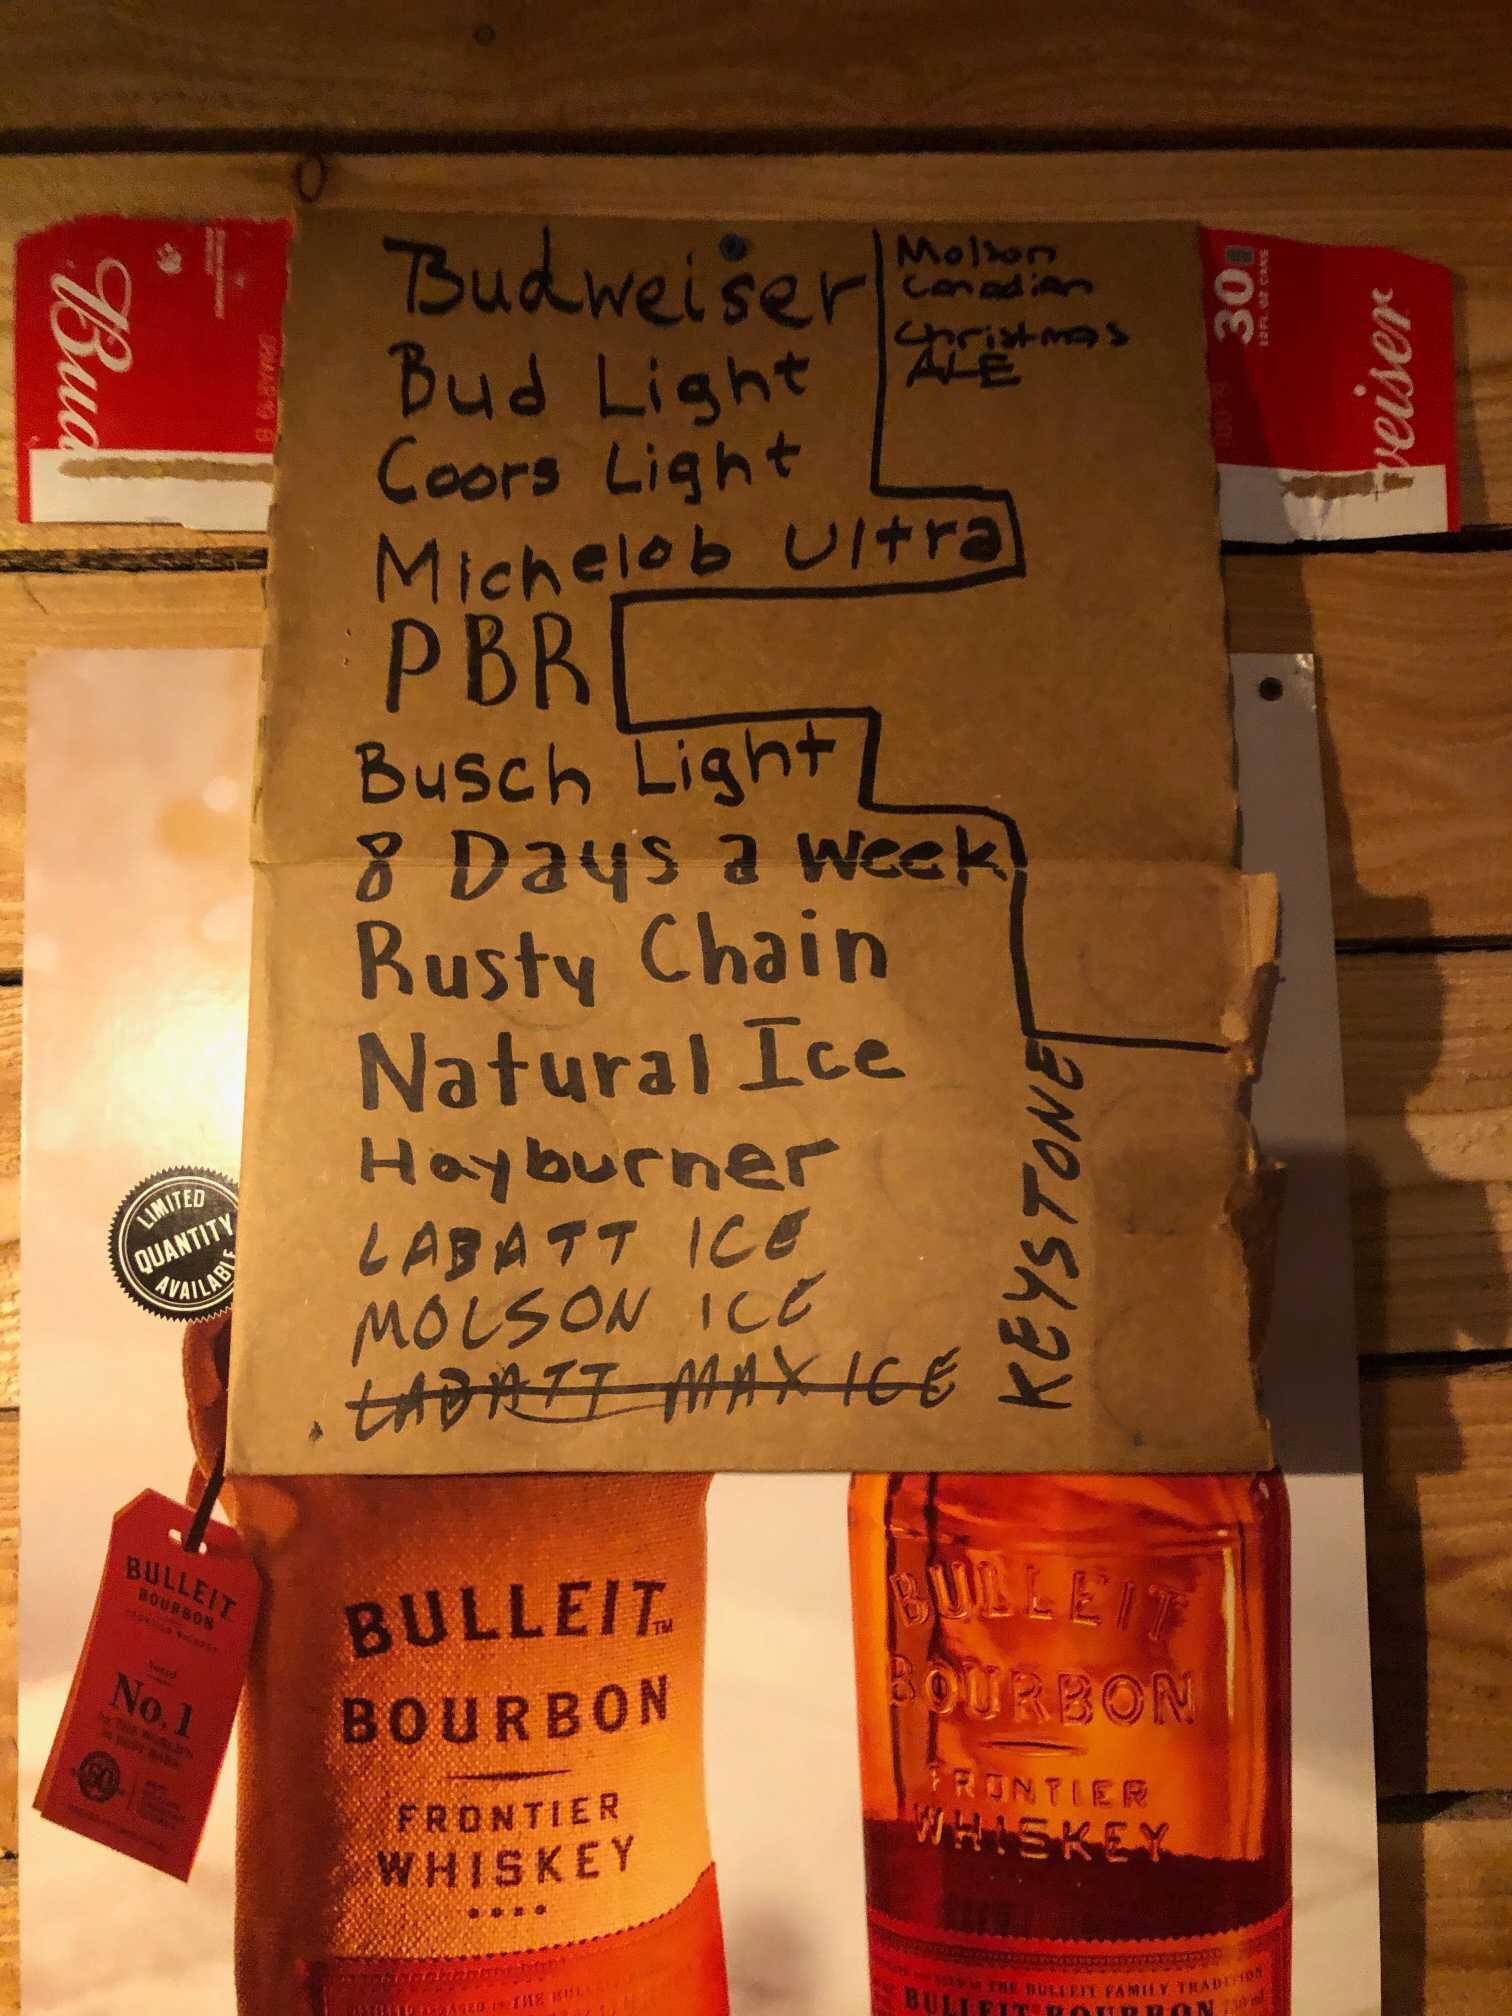 Budweiser
Bud Light
Coors Light
Michelob Ultra
PBR
Busch Light
8 Days a Week
Rusty Chain
Natural Ice
Hayburner
LABATT ICE
MOLSON ICE
LABATT MAX ICE
KEYSTONE
Molson
Canadian
Christmas
ALE
Bud
30
12 FL OZ CANS
weiser
LIMITED
QUANTITY
AVAILABLE
BULLEIT
BOURBON
FRONTIER WHISKEY
No. 1
BULLEIT TM
BOURBON
FRONTIER
WHISKEY
BULLEIT
BOURBON
FRONTIER
WHISKEY
THE BULLEIT FAMILY TRADITION
BULLEIT BOURBON